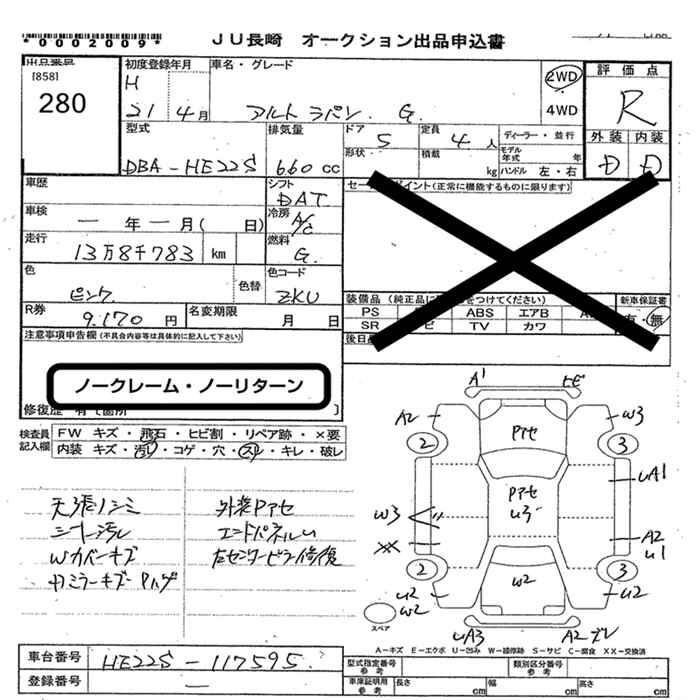 *0002009*
JU長崎 オークション出品申込書
出品番号
[858]
280
初度登録年月
H
21 4月
車名・グレード
アルト ラパン G
2WD
4WD
評価点
R
外装 内装
D D
型式
DBA-HE22S
排気量
660 cc
ドア
5
形状
定員
4人
積載
kg
ディーラー・並行
モデル年式 年
ハンドル 左・右
車歴
シフト
DAT
セールスポイント(正常に機能するものに限ります)
車検
ー 年 ー 月( 日)
冷房
A/C
走行
13万8千783 km
燃料
G
色
ピンク
色替
色コード
ZKU
R券
9.170 円
名変期限
月 日
装備品 (純正品に をつけてください)
新車保証書
有・無
PS ABS エアB
SR TV カワ
注意事項申告欄(不具合内容等は具体的に記入して下さい)
ノークレーム・ノーリターン
修復歴 有( 箇所 )
検査員記入欄
FW キズ・飛石・ヒビ割・リペア跡・×要
内装 キズ・汚れ・コゲ・穴・スレ・キレ・破レ
天張りシミ
シート汚レ
Wカバーキズ
外装Pアセ
エンドパネルU
左センターピラー修復
A1
A2
W3
2
3
Pアセ
UA1
Pアセ
U3
W3
XX
A2
U1
2
3
U2
W2
W2
U2
スペア
UA3
A2ズレ
A-キズ E-エクボ U-凹み W-補修跡 S-サビ C-腐食 XX-交換済
車台番号
HE22S-117595
登録番号
ー
型式指定番号 参考
類別区分番号 参考
車庫証明用 参考
長さ cm
幅 cm
高さ cm